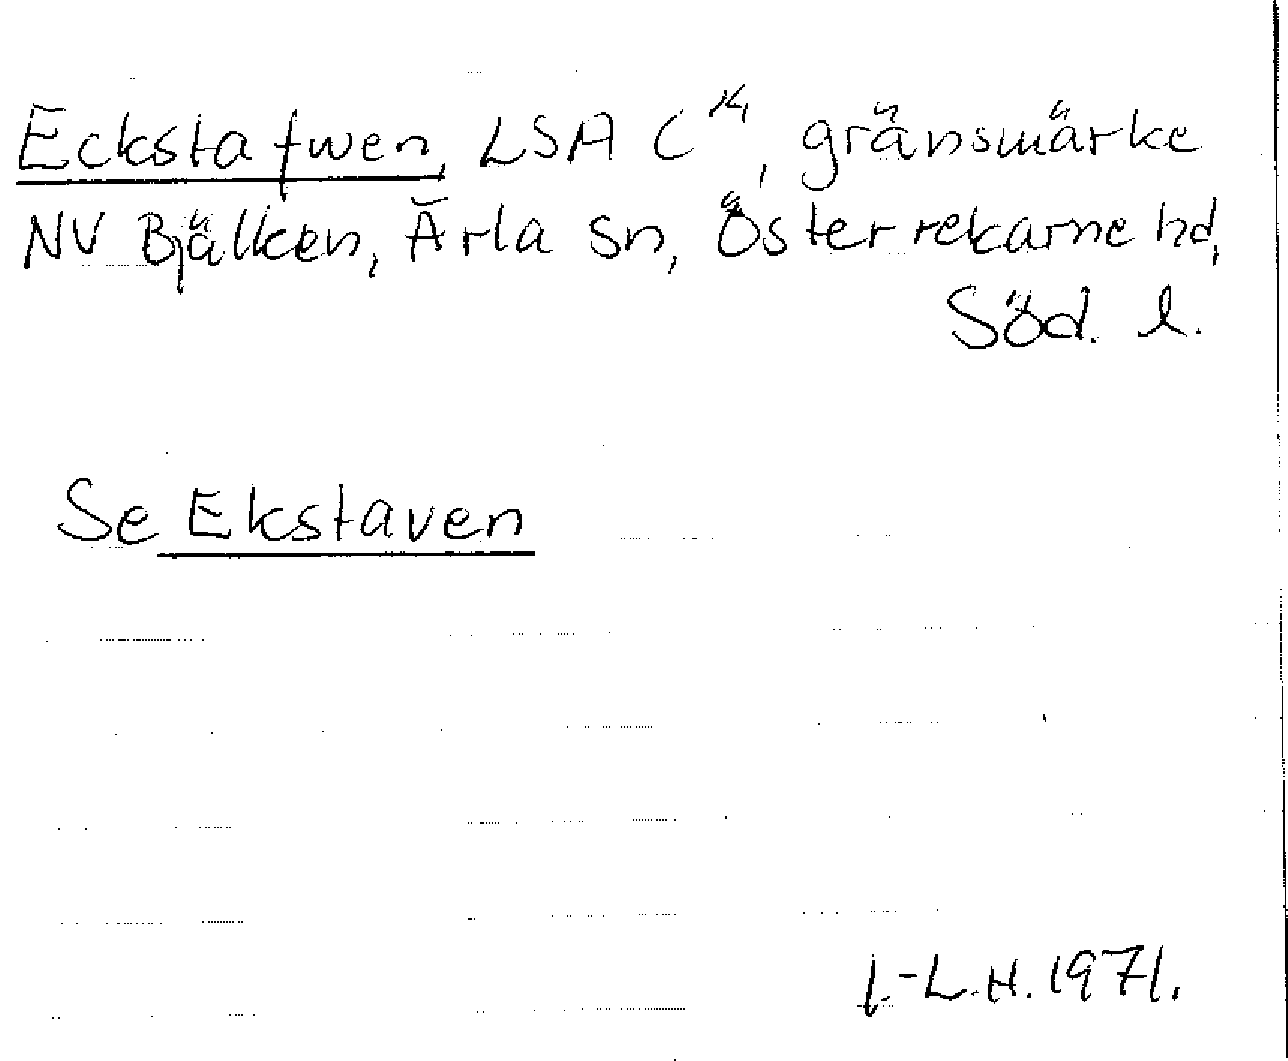 Eckstafwen, LSA C¹⁴, gränsmärke
NV Bjälken, Ärla sn, Österrekarne hd,
Söd. l.
Se Ekstaven
L.H. 1971.